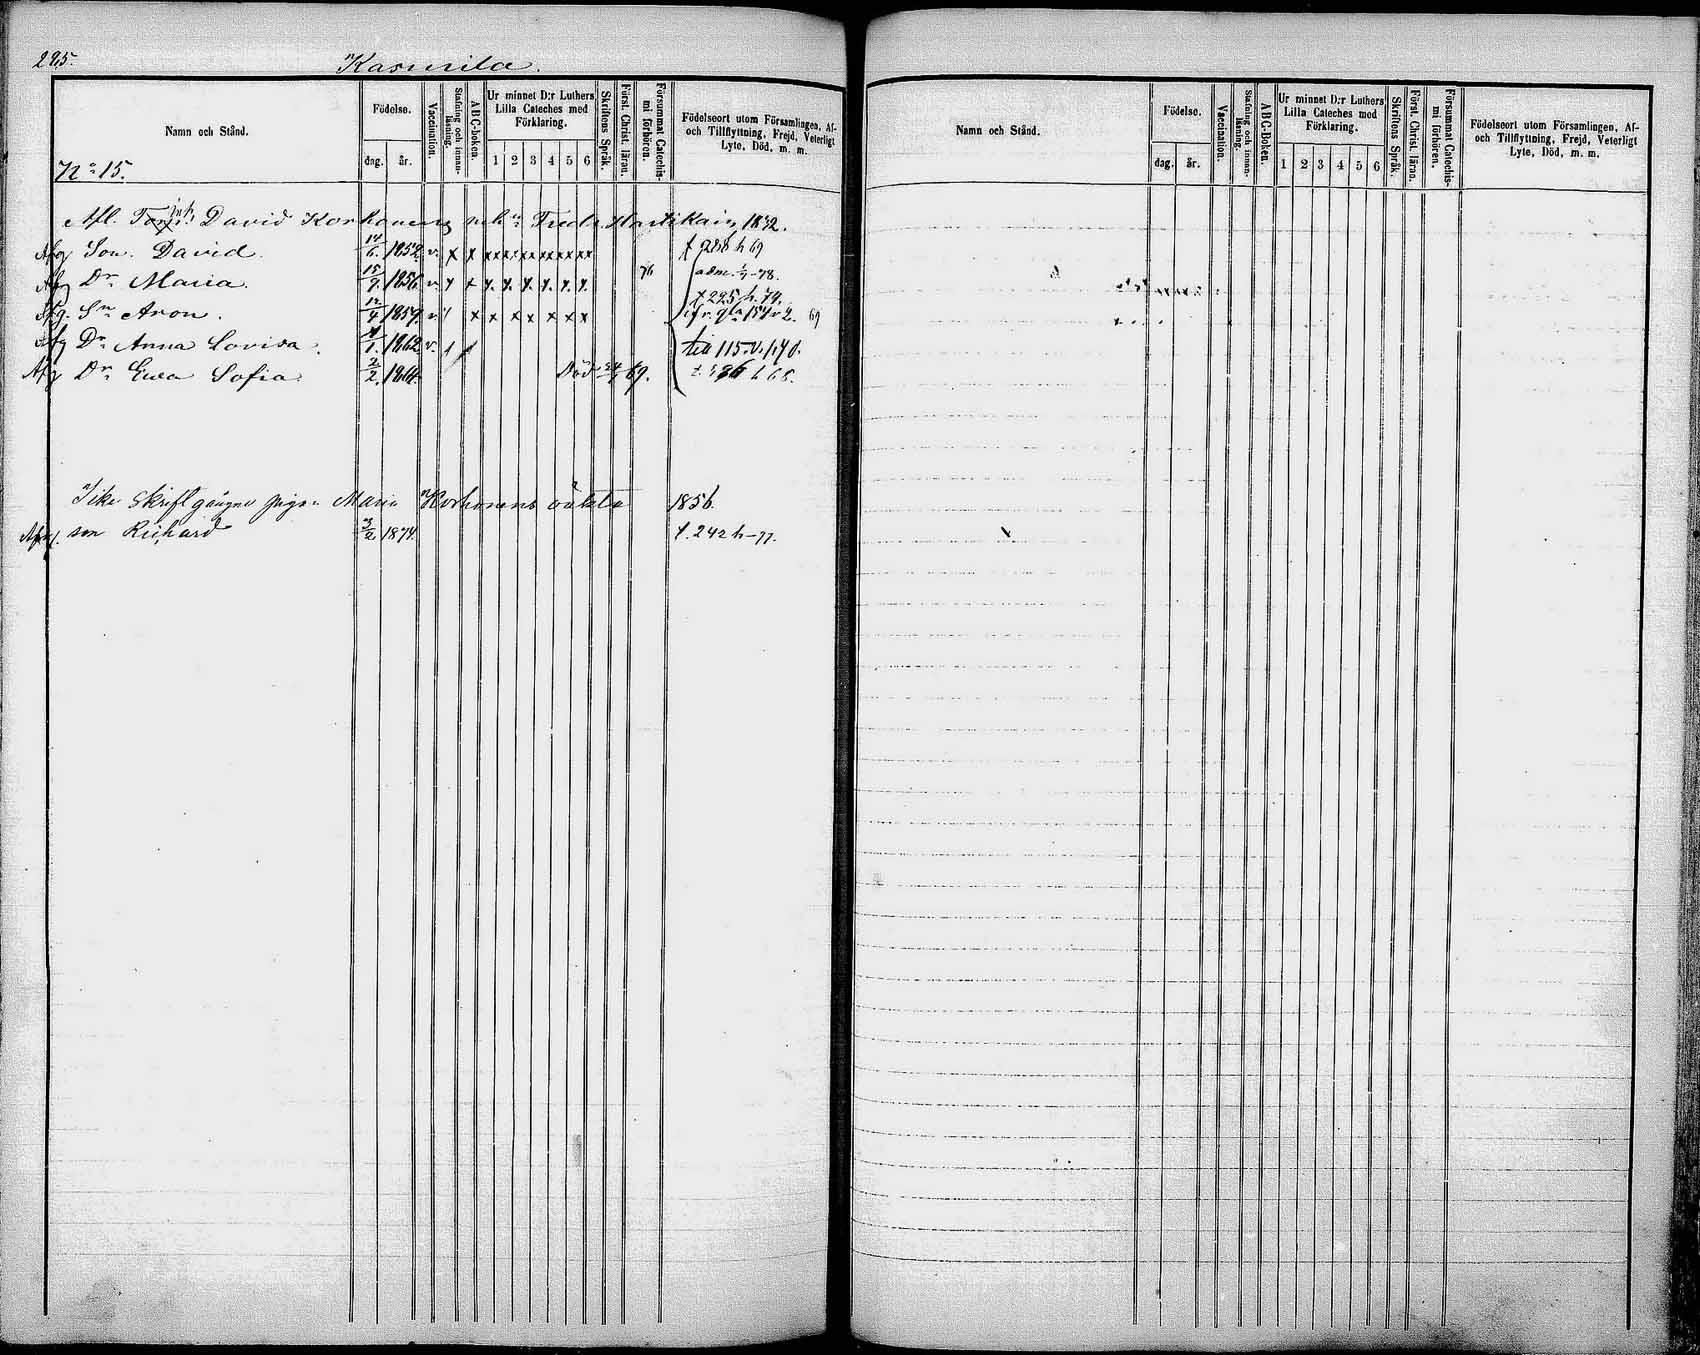 295.
Kasurila.
Namn och Stånd.
Födelse.
dag. år.
Vaccination.
Stafning och innanläsning.
ABC-boken.
Ur minnet D:r Luthers Lilla Cateches med Förklaring.
1 2 3 4 5 6
Skriftens Språk.
Först. Christ. läran.
Försummat Catechismi förhören.
Födelseort utom Församlingen, Af- och Tillflyttning, Frejd, Veterligt Lyte, Död, m. m.
Namn och Stånd.
Födelse.
dag. år.
Vaccination.
Stafning och innanläsning.
ABC-Boken.
Ur minnet D:r Luthers Lilla Cateches med Förklaring.
1 2 3 4 5 6
Skriftens Språk.
Först. Christ. läran.
Försummat Catechismi förhören.
Födelseort utom Församlingen, Af- och Tillflyttning, Frejd, Veterligt Lyte, Död, m. m.
No 15.
Afl. David Korhonens Hartikain 1832.
Afg Son. David. 14/6. 1852 v. x x x x x x x x x x x x
Afg Dr Maria. 15/9. 1856. v. 76 adm. -78.
Afg. Sn Aron. 12/4. 1859. v. x x x x x x x 69
Afg Dr Anna Lovisa. 1862 v. till 115.
Afg Dr Ewa Sofia. 2/2. 1864. Död 69. h 68.
Icke skriftgångne pigan Maria Korhonens oäkta 1856.
son Richard 3/2 1874. f. 242 h -77.